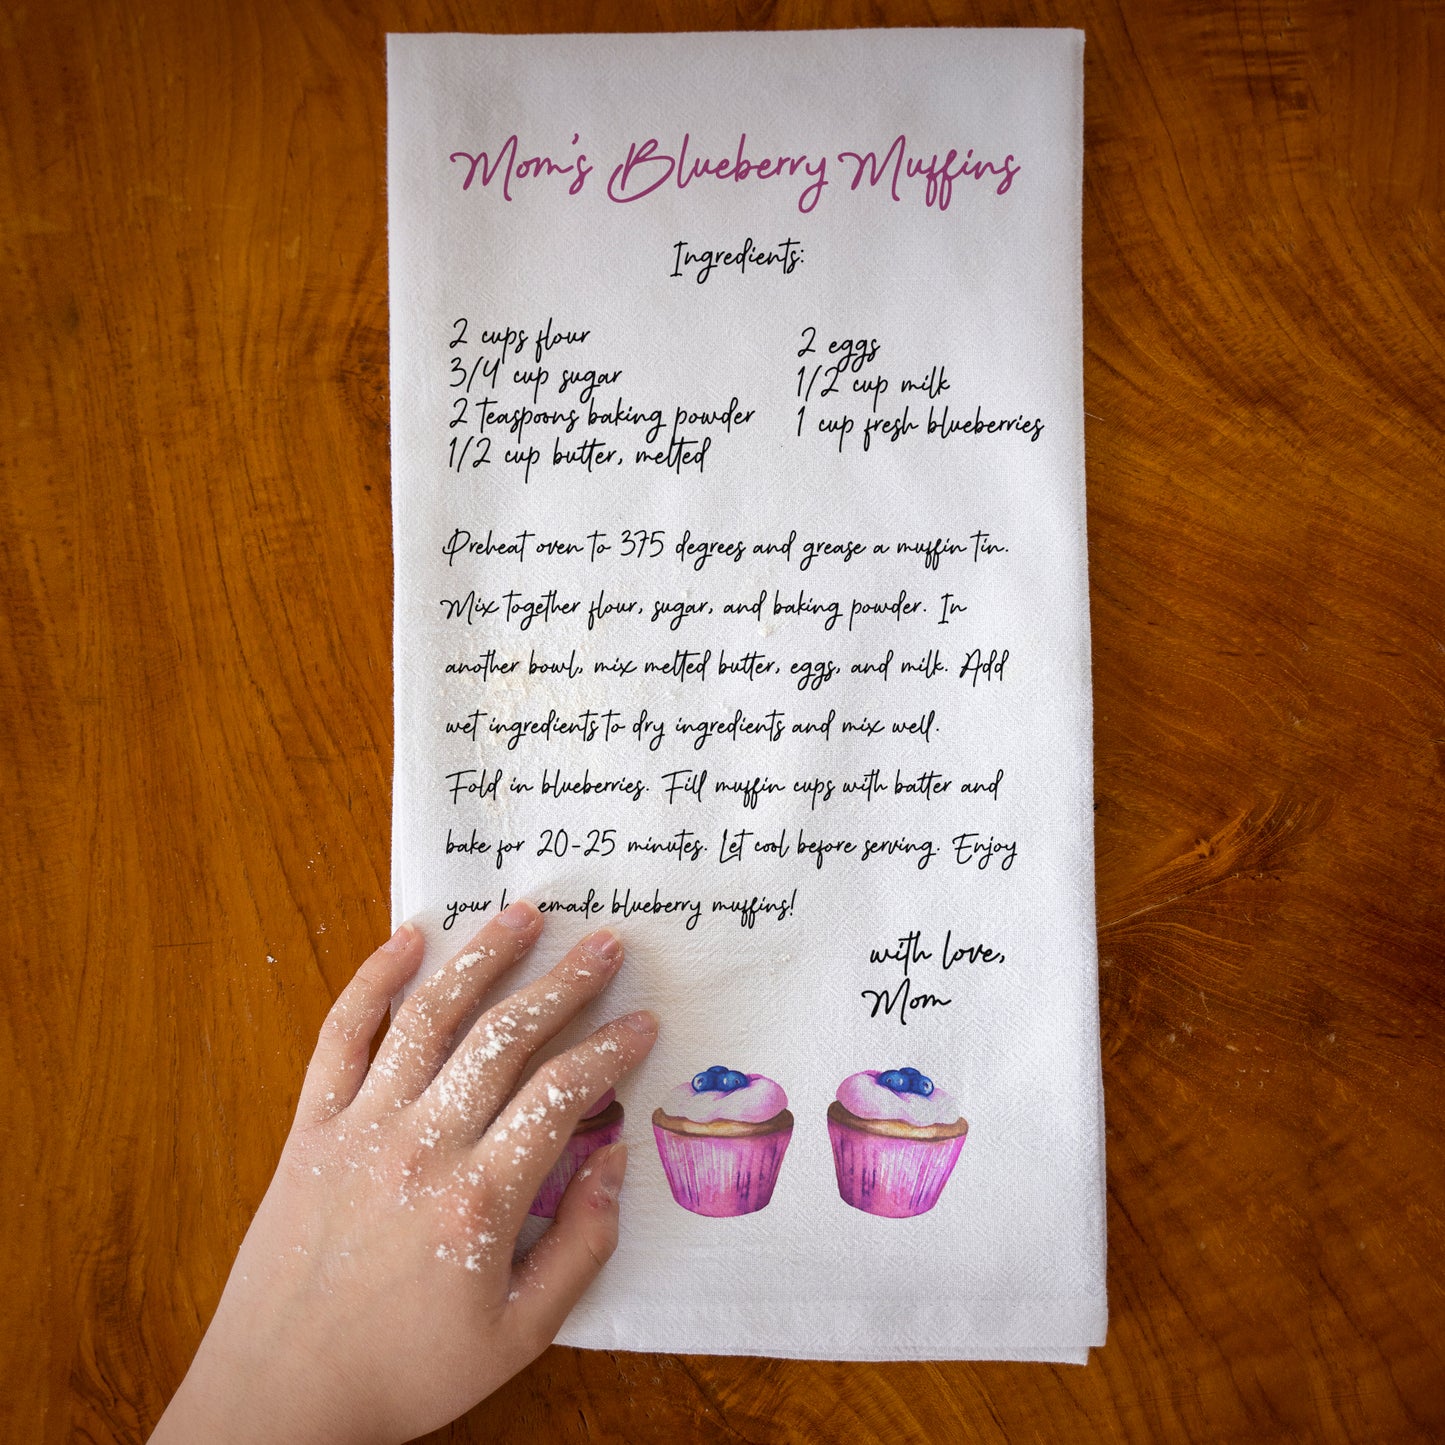 Mom's Blueberry Muffins
Ingredients:
2 cups flour
3/4 cup sugar
2 teaspoons baking powder
1/2 cup butter, melted
2 eggs
1/2 cup milk
1 cup fresh blueberries
Preheat oven to 375 degrees and grease a muffin tin.
Mix together flour, sugar, and baking powder. In
another bowl, mix melted butter, eggs, and milk. Add
wet ingredients to dry ingredients and mix well.
Fold in blueberries. Fill muffin cups with batter and
bake for 20-25 minutes. Let cool before serving. Enjoy
your emade blueberry muffins!
with love,
Mom